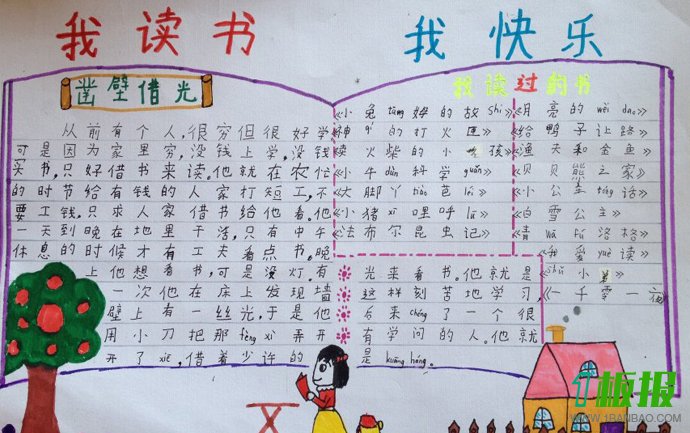 我读书 我快乐
凿壁借光
从前有个人,很穷但很好学
可是因为家里穷,没钱上学,没钱
买书,只好借书来读。他就在农忙
的时节给有钱的人家打短工,不
要工钱,只求人家借书给他看。他
一天到晚在地里干活,只有中午
休息的时候才有工夫看点书。晚
上他想看书,可是没灯有
一次他在床上发现墙
壁上有一丝光,于是他
用小刀把那fèng xì弄开
开了xiē,借着少许的
光来看书。他就是
这样刻苦地学习,
后来chéng了一个很
有学问的人。他就
是kuāng héng.
我读过的书
《小兔tāng姆的故shi》
《神qí的打火匣》
《卖火柴的小女孩》
《小牛dùn科学guǎn》
《大脚丫tiào芭lěi》
《小猪xī哩呼lū》
《法布尔昆虫记》
《月亮的wèi dao》
《给鸭子让路》
《渔夫和金鱼》
《贝贝熊之家》
《小公主tóng话》
《白雪公主》
《青wā fú洛格》
《我爱yuè读》
《shǔ小弟》
《一千零一夜》
板报
WWW.1BANBAO.COM